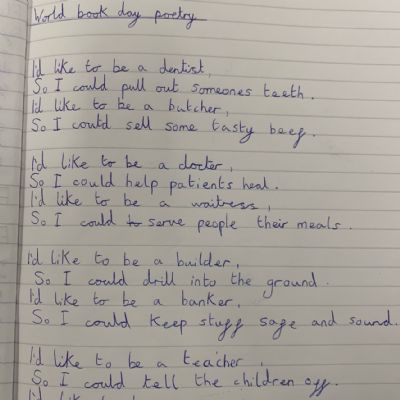 World book day poetry
I'd like to be a dentist,
So I could pull out someones teeth.
I'd like to be a butcher,
So I could sell some tasty beef.
I'd like to be a docter,
So I could help patients heal.
I'd like to be a waitress,
So I could to serve people their meals.
I'd like to be a builder,
So I could drill into the ground.
I'd like to be a banker,
So I could keep stuff safe and sound.
I'd like to be a teacher,
So I could tell the children off.
I'd like to